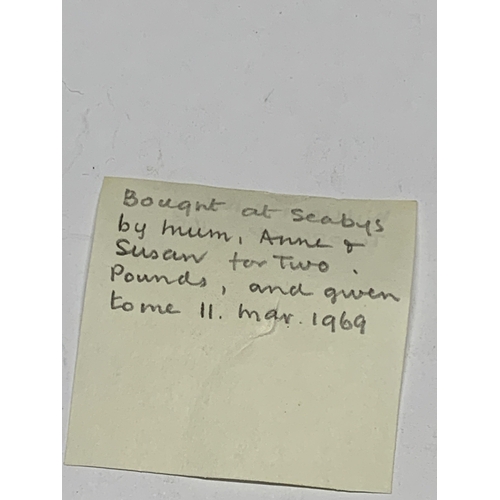 Bought at Seabys
by mum, Anne &
Susan for Two
Pounds, and given
to me 11. Mar. 1969